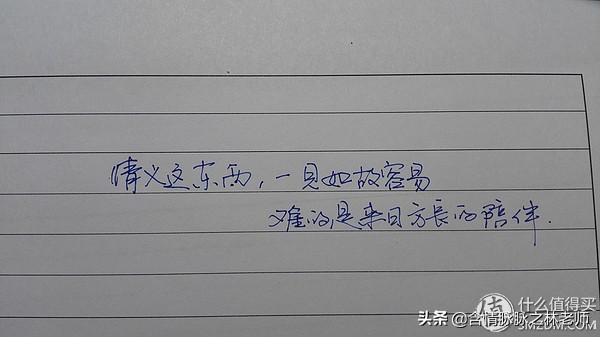 情义这东西，一见如故容易
难的是来日方長的陪伴.
值 什么值得买
SMZDM.COM
头条 @含情脉脉之林老师